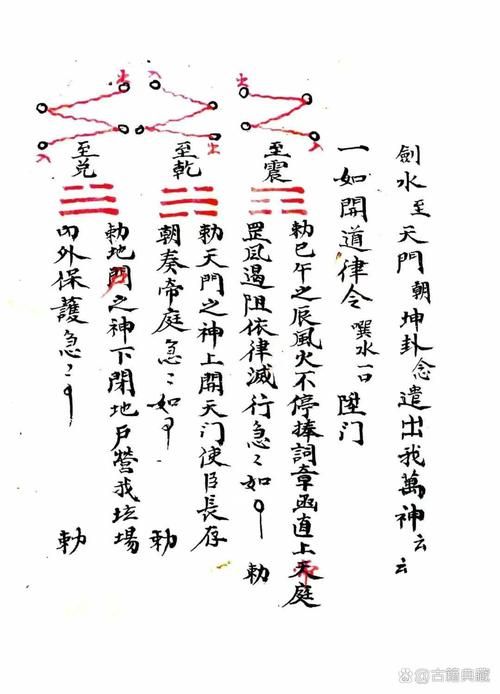 劍水至天門朝坤卦念遣出我萬神云云
一如開道律令 噀水一口 陞门
出 入
至震
勅巳午之辰風火不停捧詞章函直上天庭
罡風遏阻依律滅行急〻如 勅
入 出
至乾
勅天門之神上開天门使臣長存
朝奏帝庭急〻如 勅
出 入
至兌
勅地户之神下閉地戶營我坛場
内外保護急〻 勅
@古籍典藏